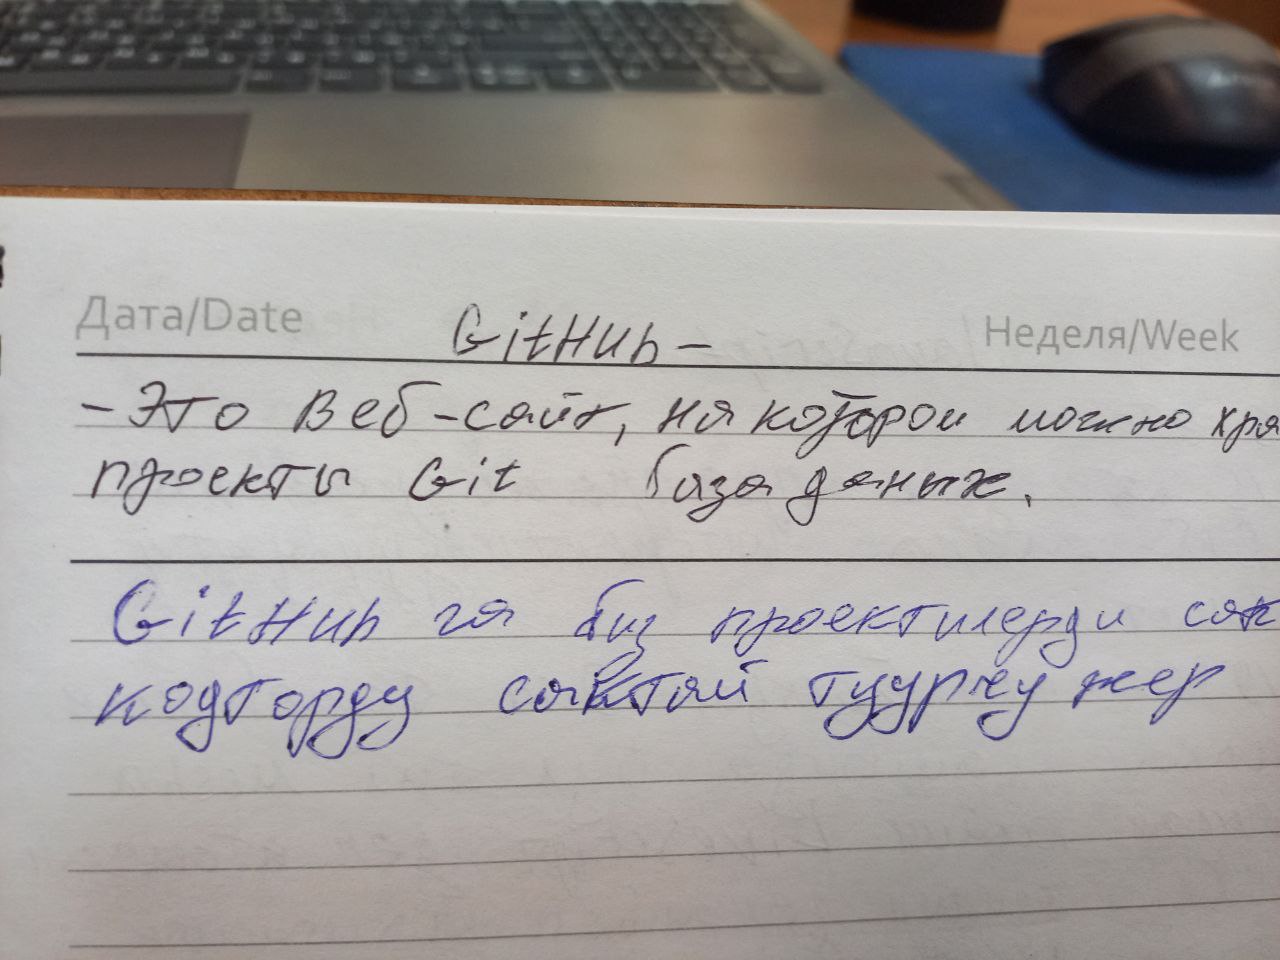 Дата/Date GitHub – Неделя/Week
– Это Веб-сайт, на котором можно хра
проекты Git база даных.
GitHub га биз проектилерди сак
кодторду сактай туурчу жер